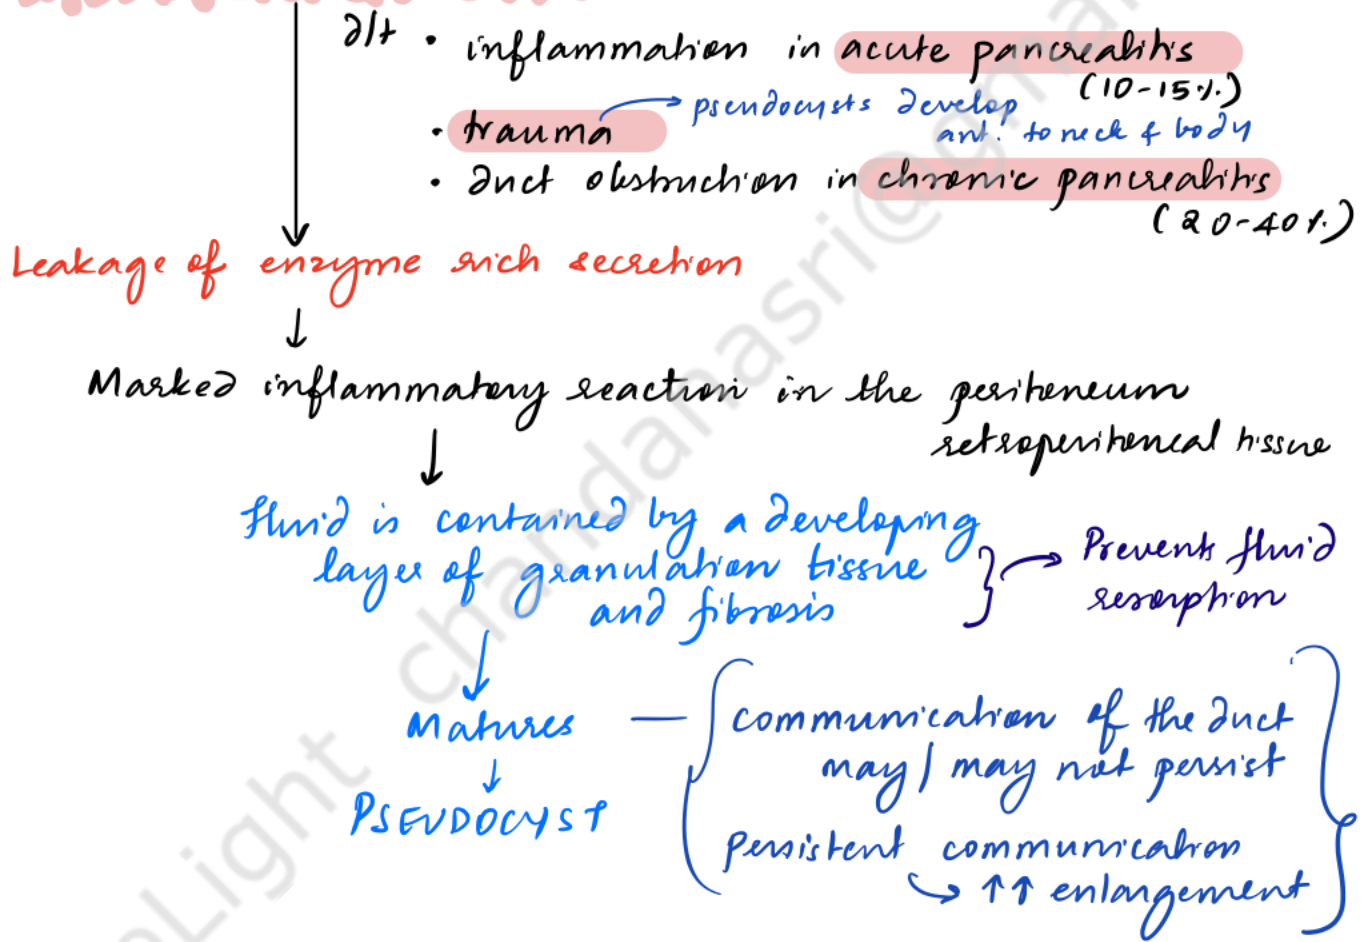 d/t • inflammation in acute pancreatitis
(10-15%.)
• trauma → pseudocysts develop
ant. to neck & body
• duct obstruction in chronic pancreatitis
(20-40%.)
Leakage of enzyme rich secretion
↓
Marked inflammatory reaction in the peritoneum
retroperitoneal tissue
↓
fluid is contained by a developing
layer of granulation tissue
and fibrosis
} → Prevents fluid
resorption
↓
Matures — { communication of the duct
may / may not persist
↓
PSEUDOCYST
Persistent communication
↳ ↑↑ enlargement }
chandanasri@gma
oLight